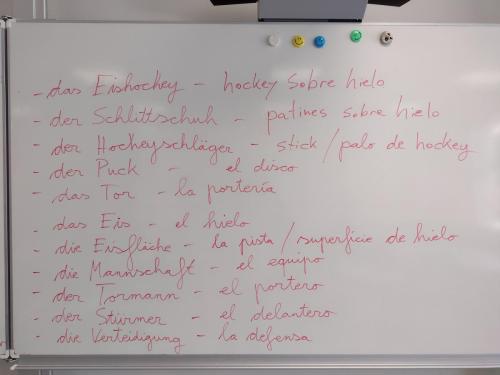 - das Eishockey - hockey sobre hielo
- der Schlittschuh - patines sobre hielo
- der Hockeyschläger - stick / palo de hockey
- der Puck - el disco
- das Tor - la portería
- das Eis - el hielo
- die Eisfläche - la pista / superficie de hielo
- die Mannschaft - el equipo
- der Tormann - el portero
- der Stürmer - el delantero
- die Verteidigung - la defensa